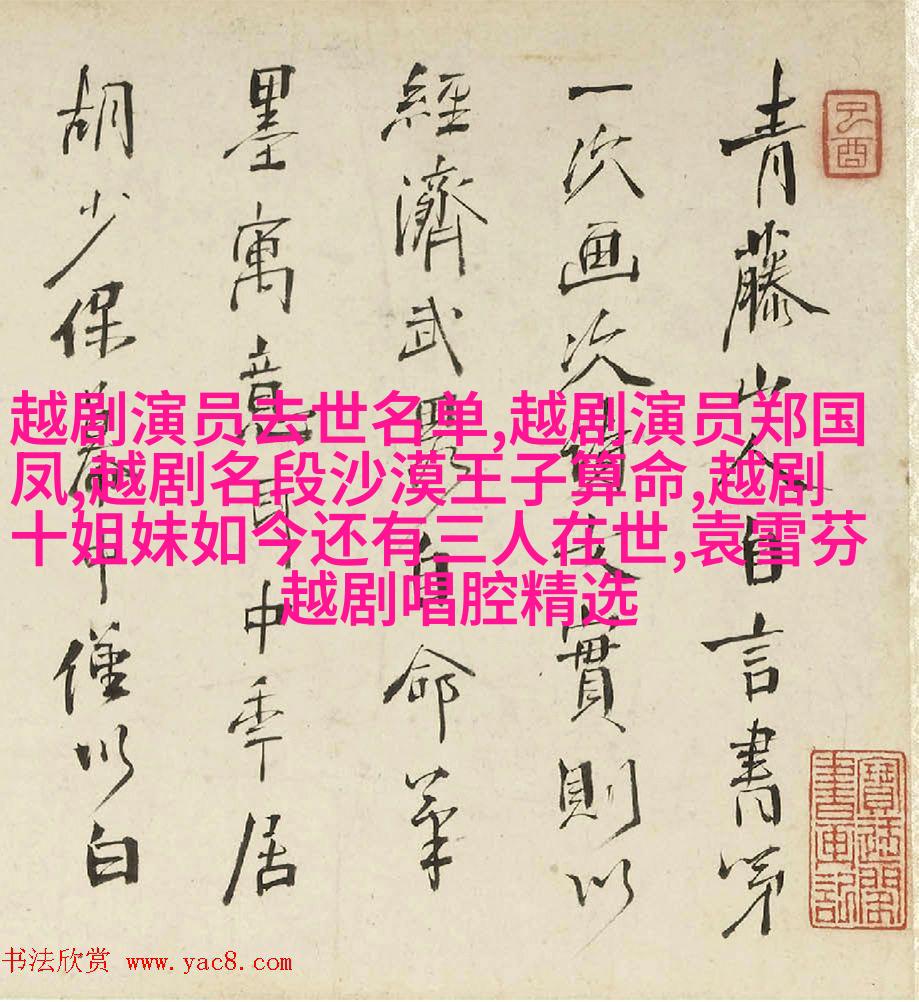 青藤山人自言書第
一次画次實則以
經濟武自命筆
墨寓意耳中季居
胡少保幕中僅以白
乙酉
寶迂閣
書畫記
越剧演员去世名单,越剧演员郑国
凤,越剧名段沙漠王子算命,越剧
十姐妹如今还有三人在世,袁雪芬
越剧唱腔精选
书法欣赏 www.yac8.com